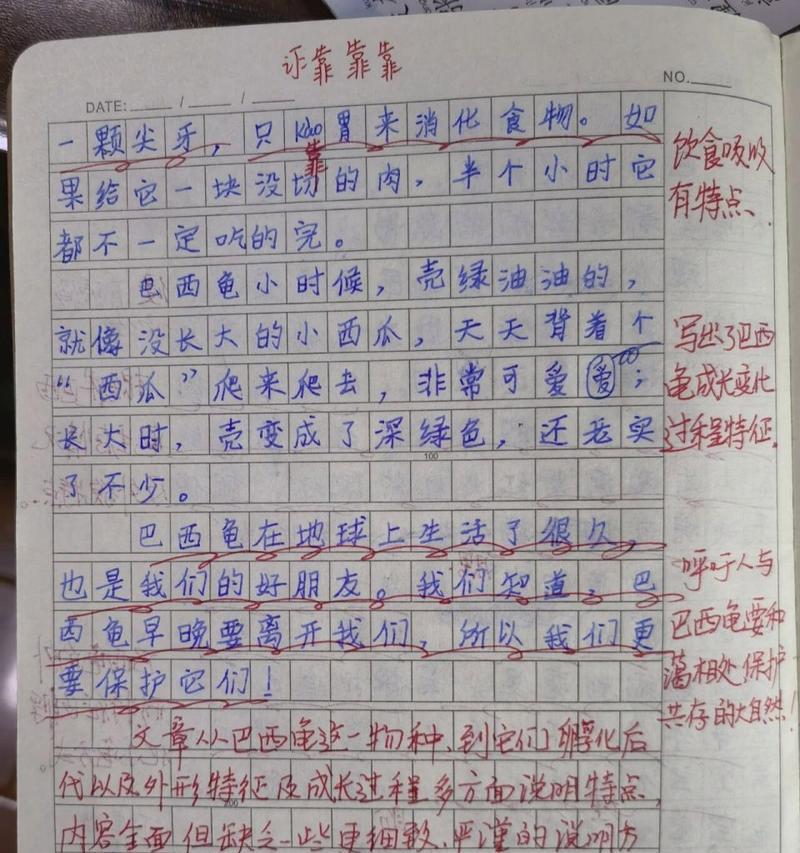 订靠靠靠
NO.
DATE: / /
一颗尖牙，只kao胃来消化食物。如
靠
果给它一块没切的肉，半个小时它
都不一定吃的完。
巴西龟小时候，壳绿油油的，
就像没长大的小西瓜，天天背着个
“西瓜”爬来爬去，非常可爱爱；
长大时，壳变成了深绿色，还老实
100
了不少。
巴西龟在地球上生活了很久，
也是我们的好朋友。我们知道，巴
西龟早晚要离开我们，所以我们更
要保护它们！
饮食吸收
有特点.
写出了巴西
龟成长变化
过程特征.
呼吁人与
巴西龟要和
谐相处,保护
共存的大自然!
文章从巴西龟这一物种,到它们孵化后
代以及外形特征及成长过程多方面说明特点,
200
内容全面,但缺乏一些更细致、严谨的说明方